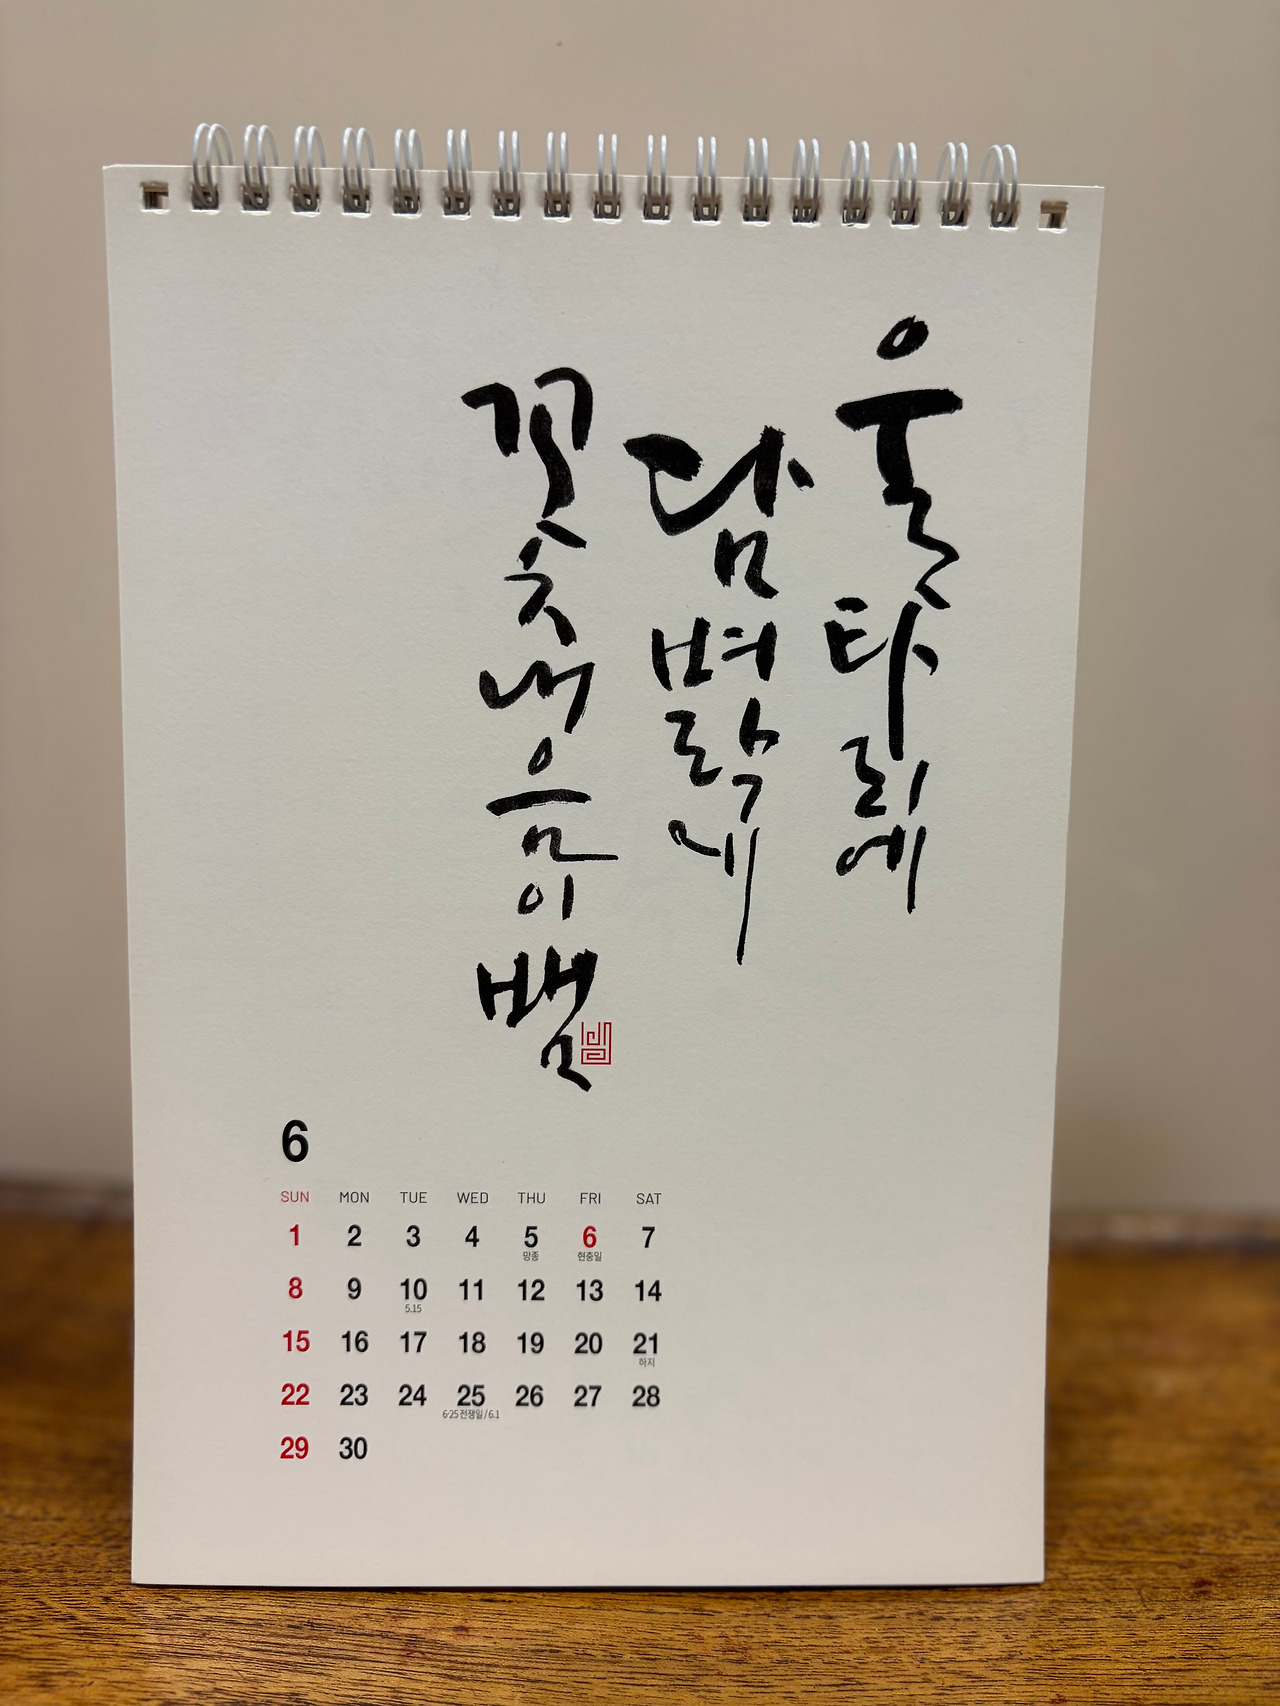 울타리에
담벼락에
꽃내음이 뱀
6
SUN MON TUE WED THU FRI SAT
1 2 3 4 5 6 7
망종 현충일
8 9 10 11 12 13 14
5.15
15 16 17 18 19 20 21
하지
22 23 24 25 26 27 28
6·25전쟁일 / 6.1
29 30